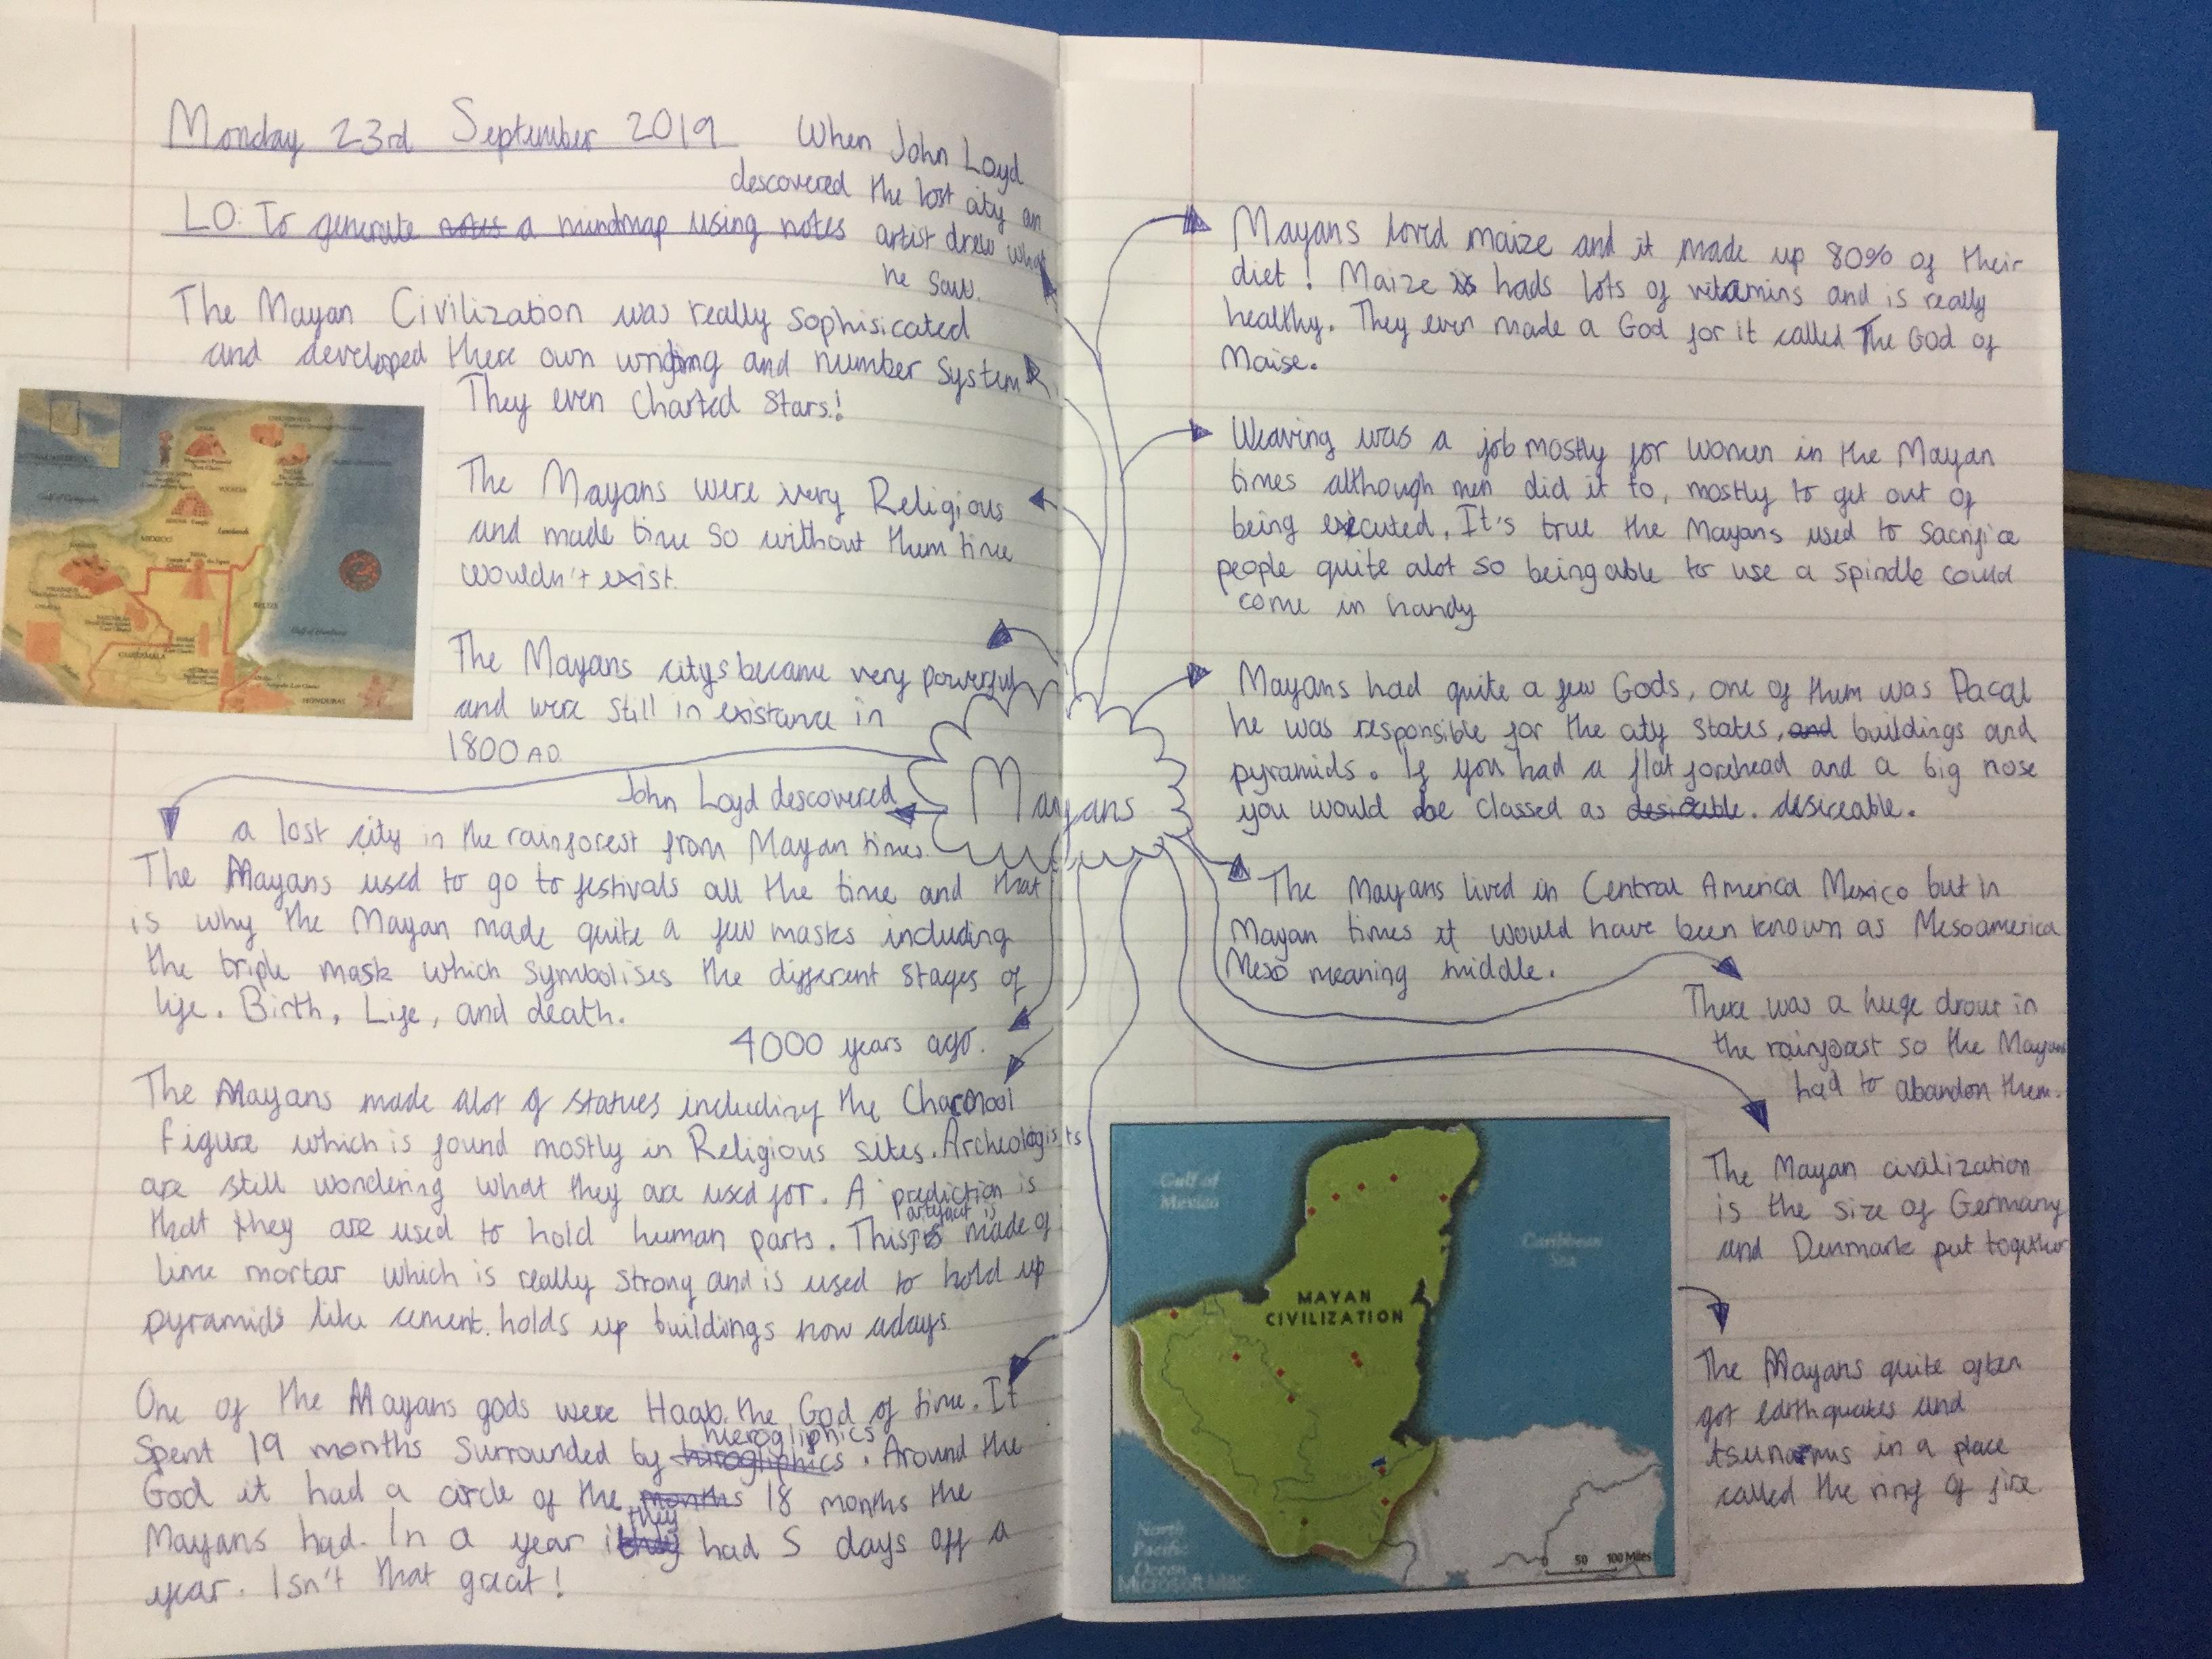 Monday 23rd September 2019
LO: To generate notes a mindmap using notes
When John Loyd
descovered the lost city an
artist drew what
he saw.
The Mayan Civilization was really Sophisicated
and developed there own writing and number System
They even Charted Stars!
The Mayans were very Religious
and made time so without them time
wouldn't exist.
The Mayans citys became very powerful
and were still in existance in
1800 AD
John Loyd descovered
a lost city in the rainforest from Mayan times.
The Mayans used to go to festivals all the time and that
is why the Mayan made quite a few masks including
the triple mask which symbolises the different stages of
life. Birth, Life, and death.
4000 years ago.
The Mayans made alot of statues including the Chacmool
figure which is found mostly in Religious sites. Archeologists
are still wondering what they are used for. A prediction is
that they are used to hold human parts. This artefact is made of
lime mortar which is really strong and is used to hold up
pyramids like cement. holds up buildings now adays
One of the Mayans gods were Haab the God of time. It
Spent 19 months surrounded by hirogliphics hierogliphics. Around the
God it had a circle of the months 18 months the
Mayans had. In a year they had 5 days off a
year. Isn't that great!
Mayans
Mayans loved maize and it made up 80% of their
diet! Maize is hads lots of vitamins and is really
healthy. They even made a God for it called The God of
Maise.
Weaving was a job mostly for women in the Mayan
times although men did it to, mostly to get out of
being executed. It's true the Mayans used to sacrifice
people quite alot so being able to use a spindle could
come in handy
Mayans had quite a few Gods, one of them was Pacal
he was responsible for the city states, and buildings and
pyramids. If you had a flat forehead and a big nose
you would be classed as desirable. desireable.
The Mayans lived in Central America Mexico but in
Mayan times it would have been known as Mesoamerica
Meso meaning middle.
There was a huge drout in
the rainforast so the Mayans
had to abandon them.
The Mayan civilization
is the size of Germany
and Denmark put together
The Mayans quite often
got earthquakes and
tsunamis in a place
called the ring of fire
Gulf of
Mexico
Caribbean
Sea
MAYAN
CIVILIZATION
North
Pacific
Ocean
Microsoft Map
0 50 100 Miles
MEXICO
GUATEMALA
BELIZE
Gulf of Honduras
HONDURAS